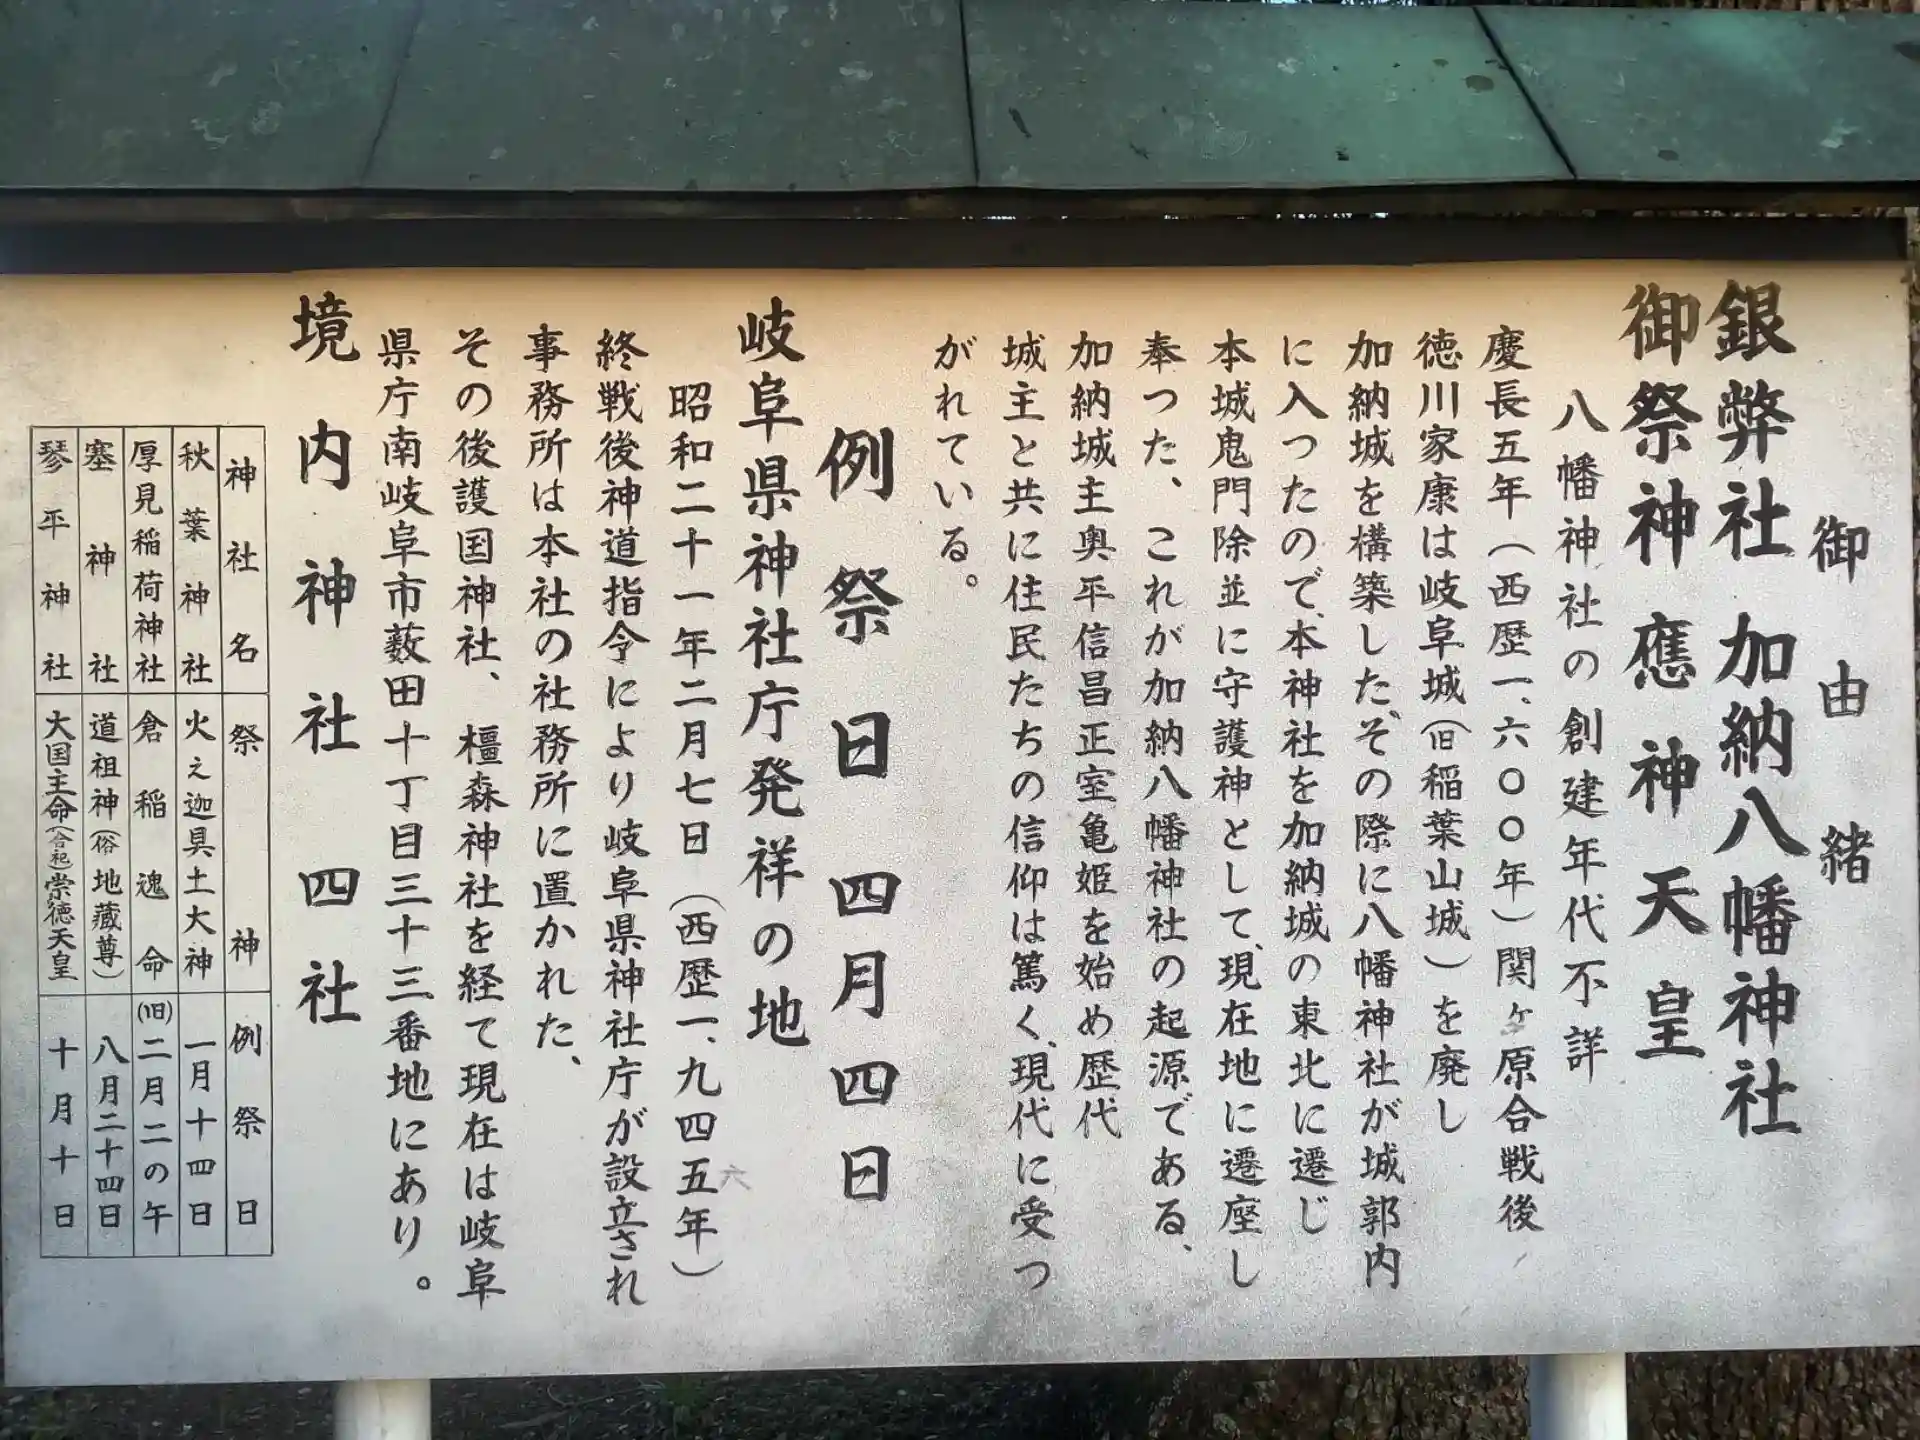 御由緒
銀弊社 加納八幡神社
御祭神 應神天皇
八幡神社の創建年代不詳
慶長五年(西歴一、六〇〇年)関ヶ原合戦後
徳川家康は岐阜城(旧稲葉山城)を廃し
加納城を構築した、その際に八幡神社が城郭内
に入つたので、本神社を加納城の東北に遷じ
本城鬼門除並に守護神として、現在地に遷座し
奉つた、これが加納八幡神社の起源である、
加納城主奥平信昌正室亀姫を始め歴代
城主と共に住民たちの信仰は篤く、現代に受つ
がれている。
例祭日 四月四日
岐阜県神社庁発祥の地
昭和二十一年二月七日(西歴一、九四五年)
六
終戦後神道指令により岐阜県神社庁が設立され
事務所は本社の社務所に置かれた、
その後護国神社、橿森神社を経て現在は岐阜
県庁南岐阜市薮田十丁目三十三番地にあり。
境内神社 四社
神社名 祭神 例祭日
秋葉神社 火之迦具土大神 一月十四日
厚見稲荷神社 倉稲魂命 (旧)二月二の午
塞神社 道祖神(俗地蔵尊) 八月二十四日
琴平神社 大国主命(合祀崇徳天皇 十月十日